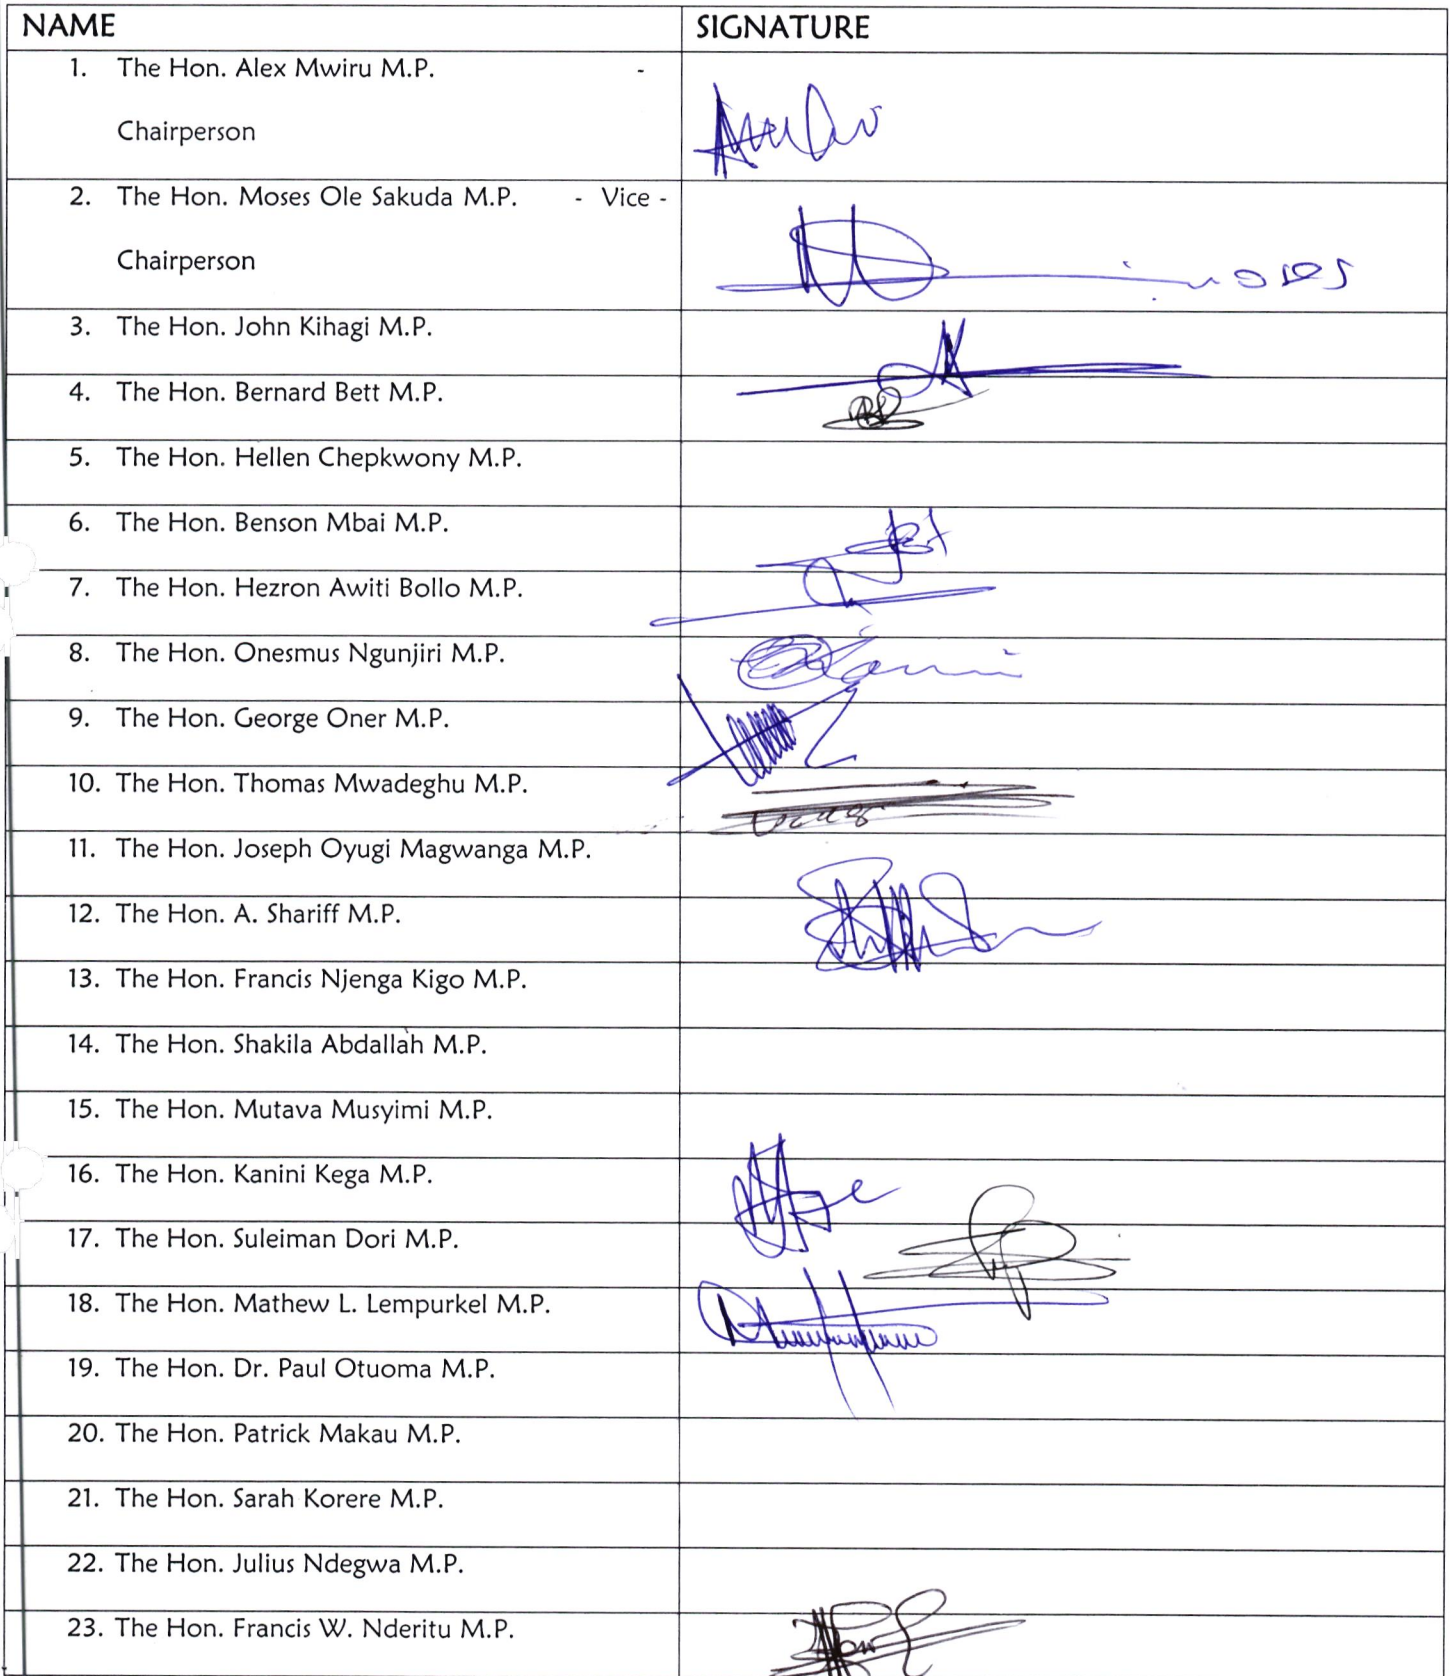 NAME SIGNATURE
1. The Hon. Alex Mwiru M.P. -
Chairperson
2. The Hon. Moses Ole Sakuda M.P. - Vice -
Chairperson
3. The Hon. John Kihagi M.P.
4. The Hon. Bernard Bett M.P.
5. The Hon. Hellen Chepkwony M.P.
6. The Hon. Benson Mbai M.P.
7. The Hon. Hezron Awiti Bollo M.P.
8. The Hon. Onesmus Ngunjiri M.P.
9. The Hon. George Oner M.P.
10. The Hon. Thomas Mwadeghu M.P.
11. The Hon. Joseph Oyugi Magwanga M.P.
12. The Hon. A. Shariff M.P.
13. The Hon. Francis Njenga Kigo M.P.
14. The Hon. Shakila Abdallah M.P.
15. The Hon. Mutava Musyimi M.P.
16. The Hon. Kanini Kega M.P.
17. The Hon. Suleiman Dori M.P.
18. The Hon. Mathew L. Lempurkel M.P.
19. The Hon. Dr. Paul Otuoma M.P.
20. The Hon. Patrick Makau M.P.
21. The Hon. Sarah Korere M.P.
22. The Hon. Julius Ndegwa M.P.
23. The Hon. Francis W. Nderitu M.P.